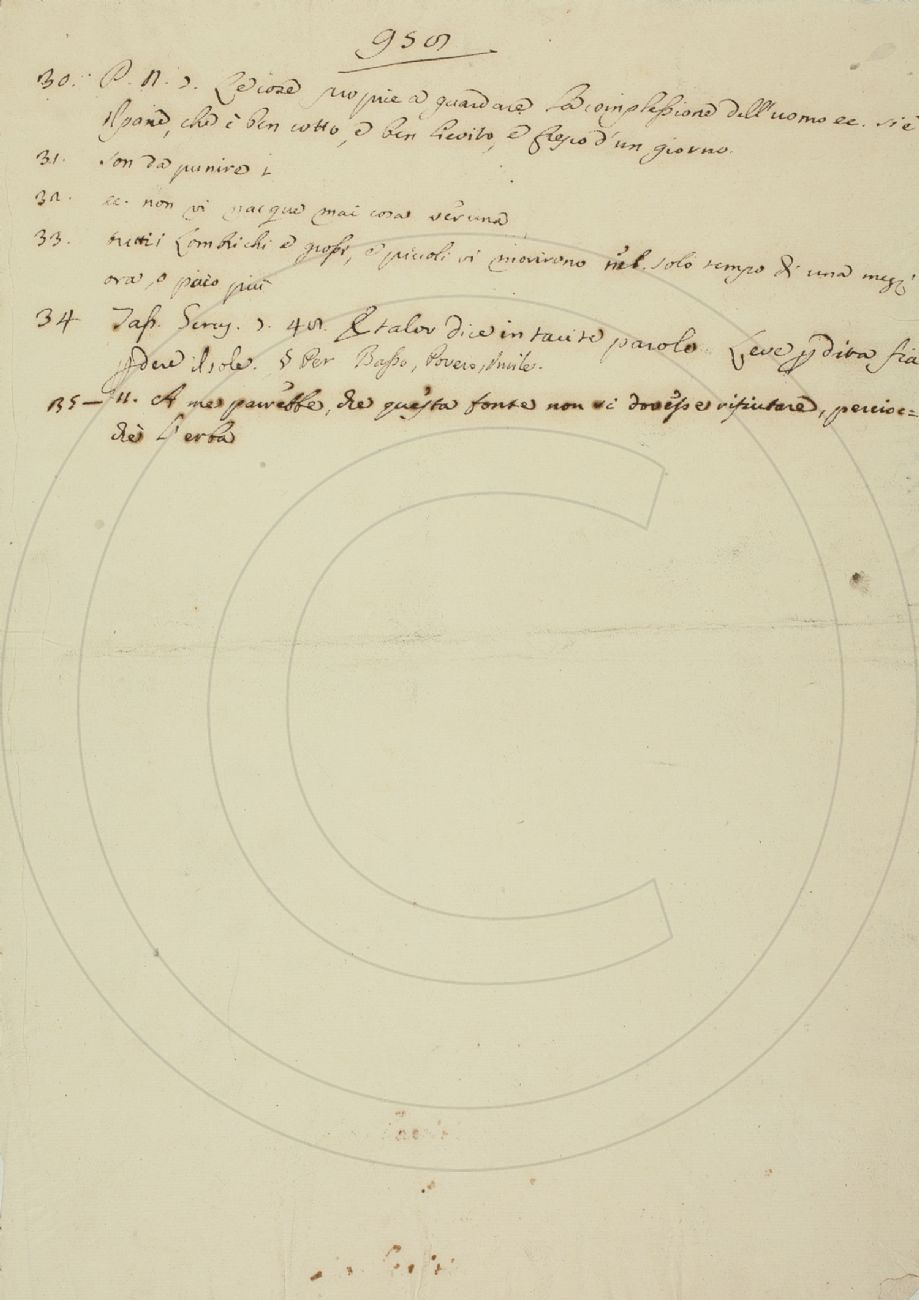 958
30. P. N. 2. Le cose propie a guardare la complessione dell'uomo ec. si è
il pane, che è ben cotto, e ben lievito, e fresco d'un giorno.
31. son da punire
32. ec. non vi nacque mai cosa veruna
33. tutti i Lombrichi e grossi, e piccoli vi morirono nel solo tempo di una mezz'
ora, o poco più
34 Tass. Gerus. 2. 48. E talor dice in tacite parole Leve perdita fia
perdere il sole. § Per Basso, Povero, simile.
35 — 4. A me parrebbe, che questa fonte non si dovesse rifiutare, percioc=
chè l'erba